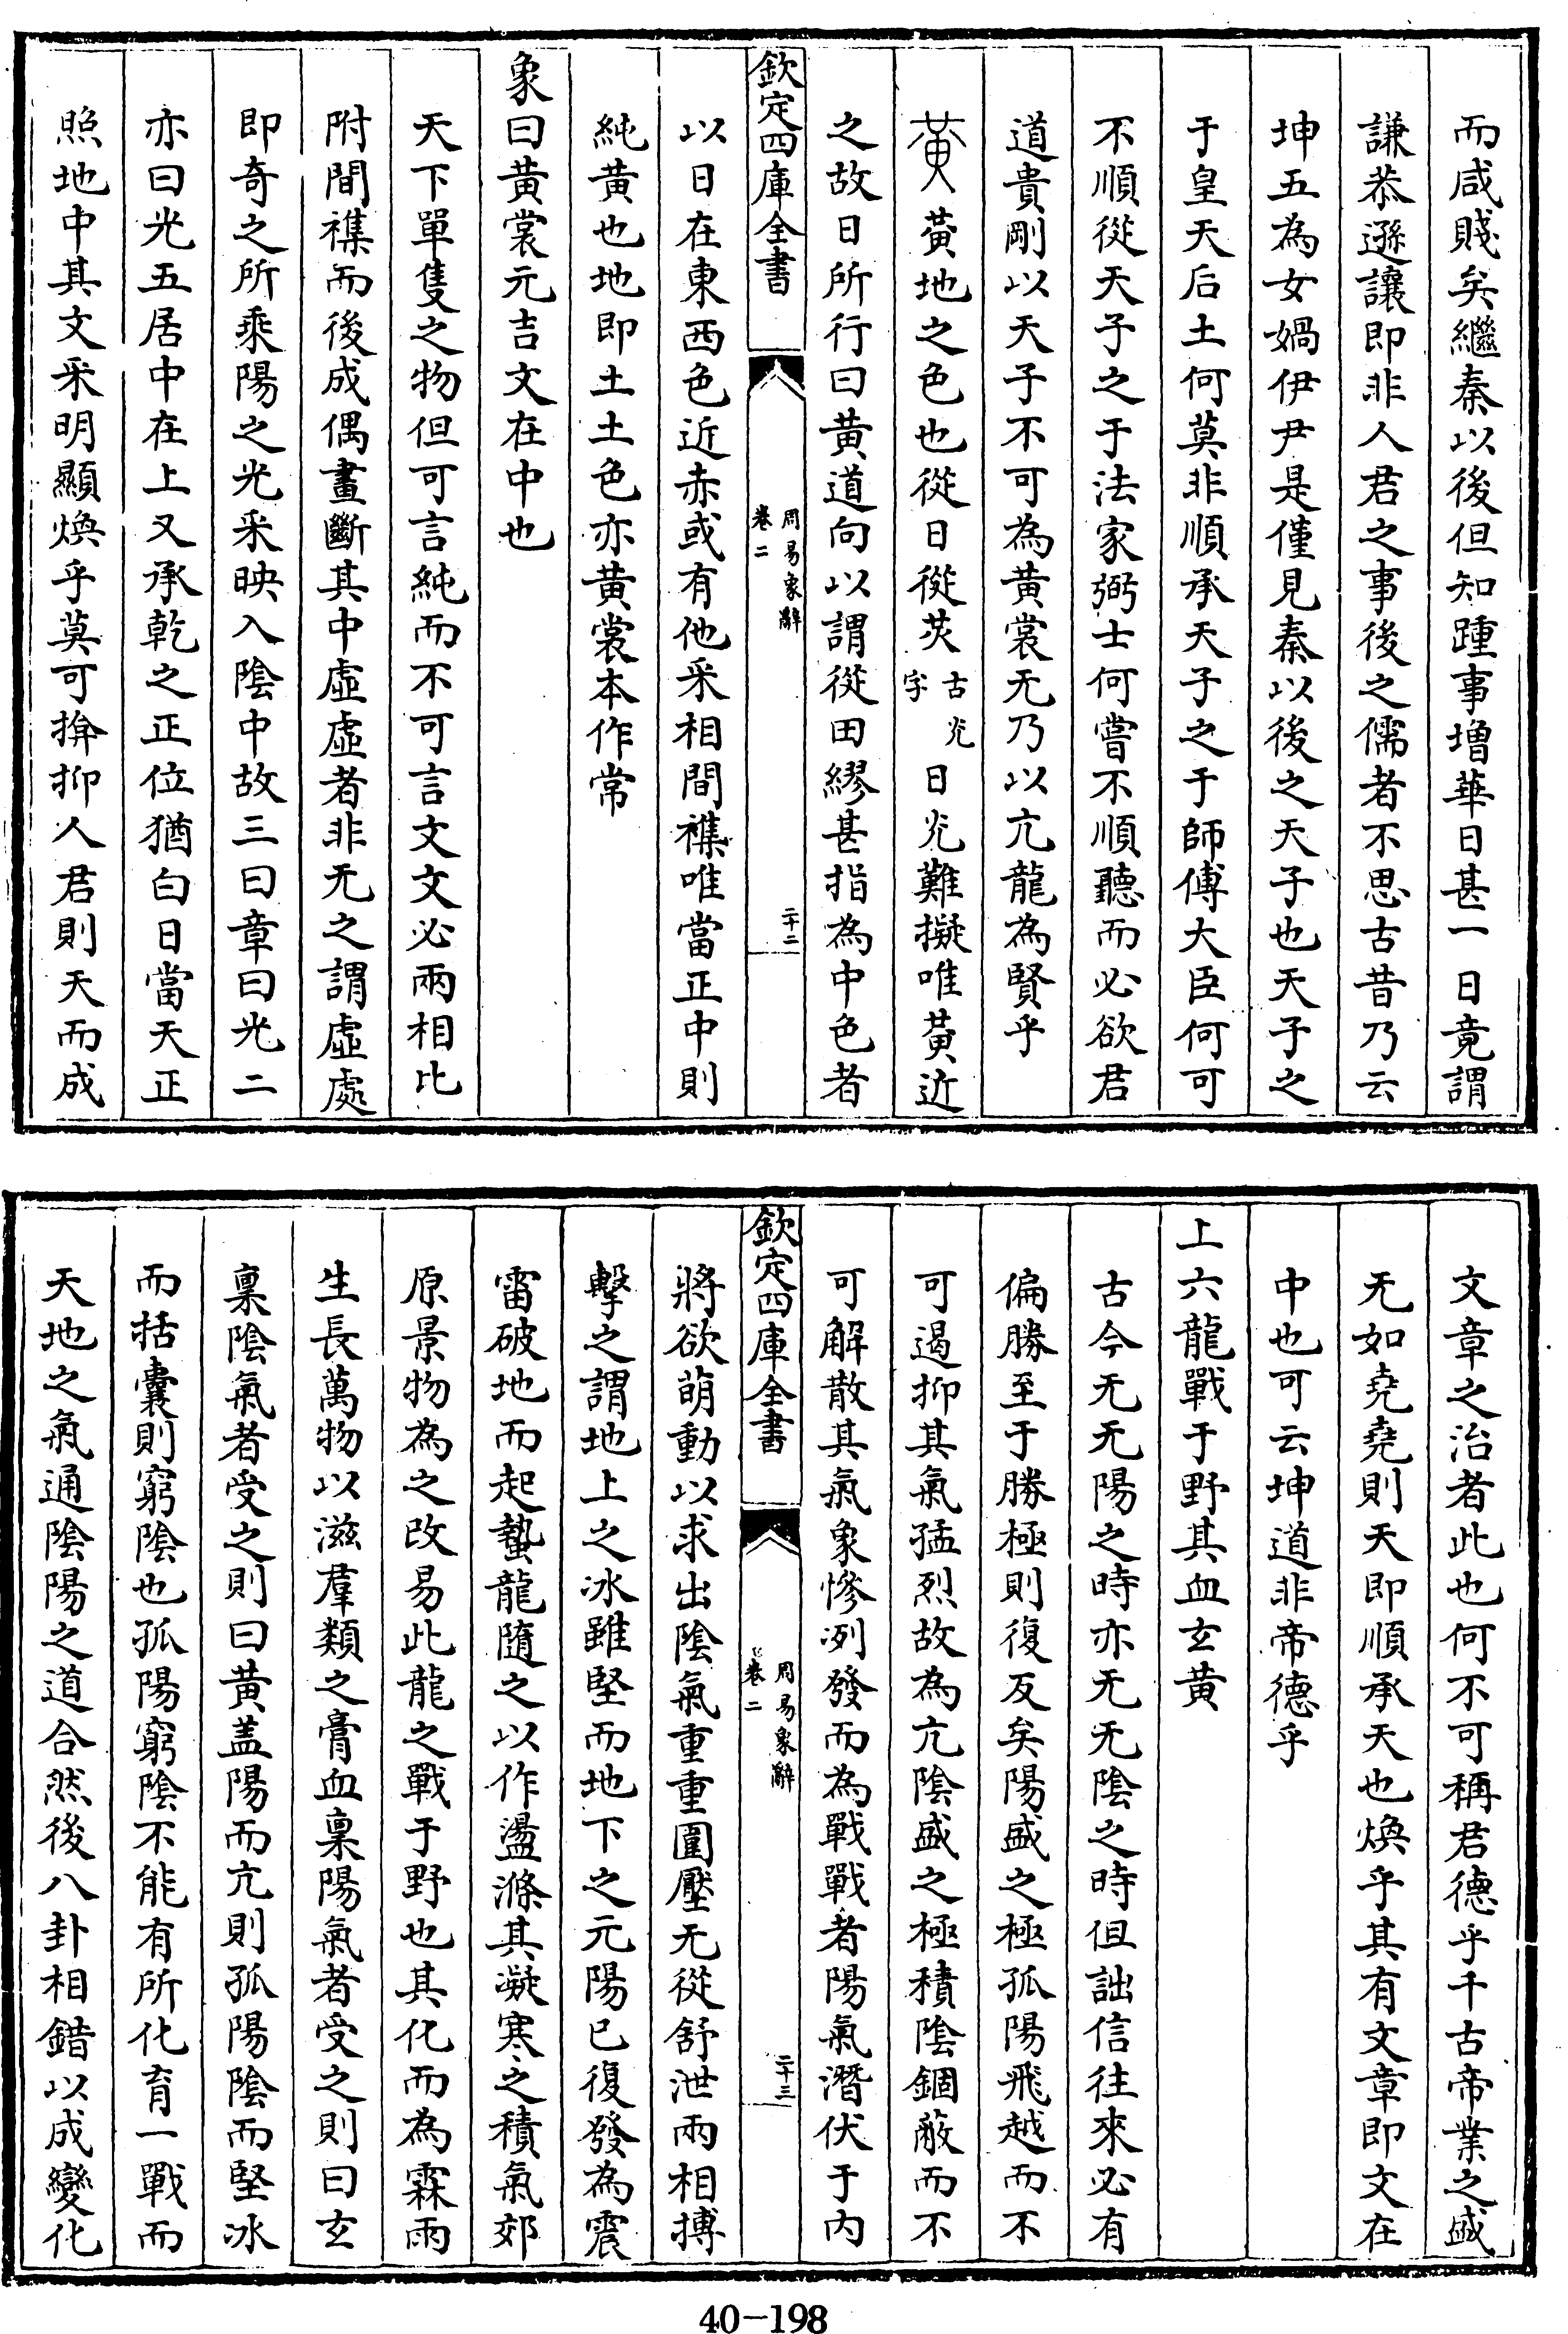 而咸賤矣繼秦以後但知踵事増華日甚一日竟謂
謙恭遜讓即非人君之事後之儒者不思古昔乃云
坤五為女媧伊尹是僅見秦以後之天子也天子之
于皇天后土何莫非順承天子之于師傅大臣何可
不順從天子之于法家弼士何嘗不順聽而必欲君
道貴剛以天子不可為黃裳无乃以亢龍為賢乎
黃地之色也從日從炗古光字日光難擬唯黃近
之故日所行曰黃道向以謂從田繆甚指為中色者
欽定四庫全書
周易象辭
卷二
二十二
以日在東西色近赤或有他采相間襍唯當正中則
純黃也地即土土色亦黃裳本作常
象曰黃裳元吉文在中也
天下單隻之物但可言純而不可言文文必兩相比
附間襍而後成偶畫斷其中虛虛者非无之謂虛處
即奇之所乘陽之光采映入陰中故三曰章曰光二
亦曰光五居中在上又承乾之正位猶白日當天正
照地中其文采明顯煥乎莫可揜抑人君則天而成
文章之治者此也何不可稱君德乎千古帝業之盛
无如堯堯則天即順承天也煥乎其有文章即文在
中也可云坤道非帝德乎
上六龍戰于野其血玄黃
古今无无陽之時亦无无陰之時但詘信往來必有
偏勝至于勝極則復反矣陽盛之極孤陽飛越而不
可遏抑其氣猛烈故為亢陰盛之極積陰錮蔽而不
可解散其氣象慘冽發而為戰戰者陽氣潛伏于內
欽定四庫全書
周易象辭
卷二
二十三
將欲萌動以求出陰氣重重圍壓无從舒泄兩相搏
擊之謂地上之冰雖堅而地下之元陽已復發為震
雷破地而起蟄龍隨之以作盪滌其凝寒之積氣郊
原景物為之改易此龍之戰于野也其化而為霖雨
生長萬物以滋羣類之膏血稟陽氣者受之則曰玄
稟陰氣者受之則曰黃蓋陽而亢則孤陽陰而堅冰
而括囊則窮陰也孤陽窮陰不能有所化育一戰而
天地之氣通陰陽之道合然後八卦相錯以成變化
40-198